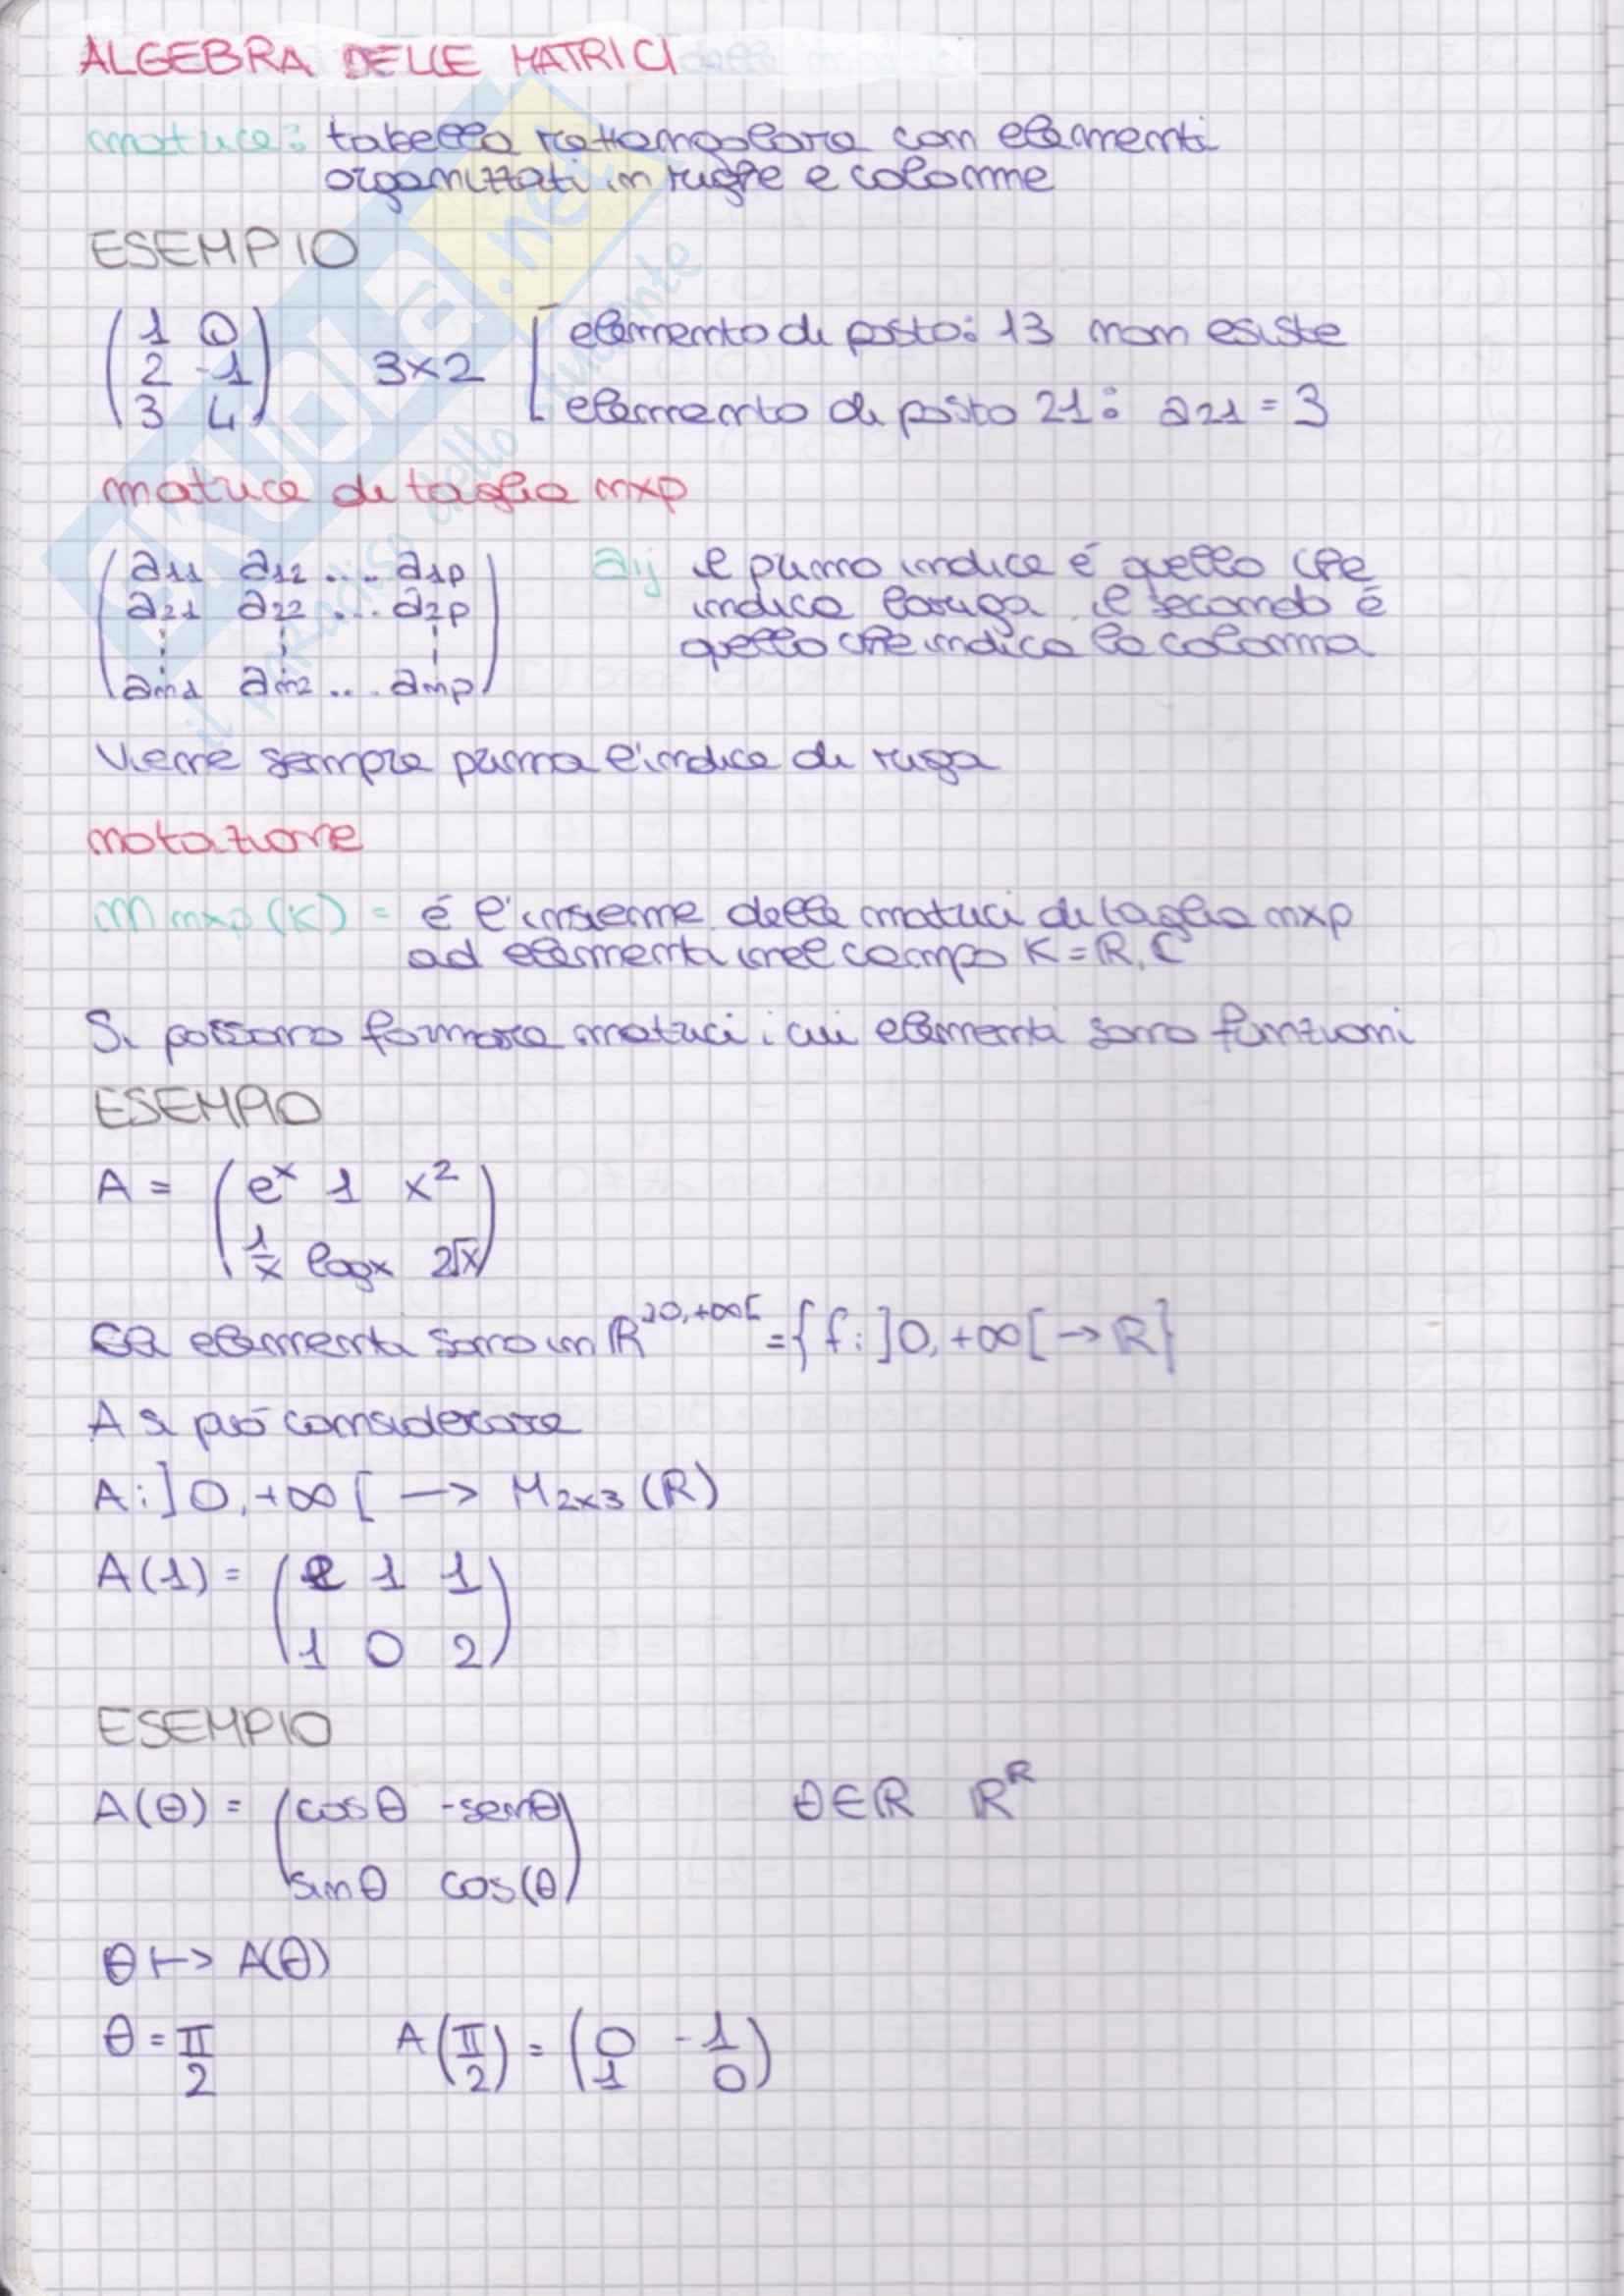 ALGEBRA DELLE MATRICI
matrice: tabella rettangolare con elementi
organizzati in righe e colonne
ESEMPIO
( 1 0 )
( 2 -1 ) 3×2 [ elemento di posto: 13 non esiste
( 3 4 ) elemento di posto 21: a21 = 3
matrice di taglia mxp
( a11 a12 .... a1p ) aij il primo indice é quello che
( a21 a22 .... a2p ) indica la riga, il secondo é
quello che indica la colonna
( am1 am2 .... amp )
Viene sempre prima l'indice di riga
notazione
M mxp (K) = é l'insieme delle matrici di taglia mxp
ad elementi nel campo K = R, C
Si possono formare matrici i cui elementi sono funzioni
ESEMPIO
A = ( e^x 1 x² )
( 1/x logx 2√x )
Gli elementi sono in R^]0,+∞[ = { f: ]0, +∞[ → R }
A si può considerare
A: ]0, +∞[ → M2x3 (R)
A(1) = ( e 1 1 )
( 1 0 2 )
ESEMPIO
A(θ) = ( cosθ -senθ ) θ∈R R^R
( sinθ cos(θ )
θ ↦ A(θ)
θ = π/2 A(π/2) = ( 0 -1 )
( 1 0 )
SKUOLA.net
il paradiso dello studente